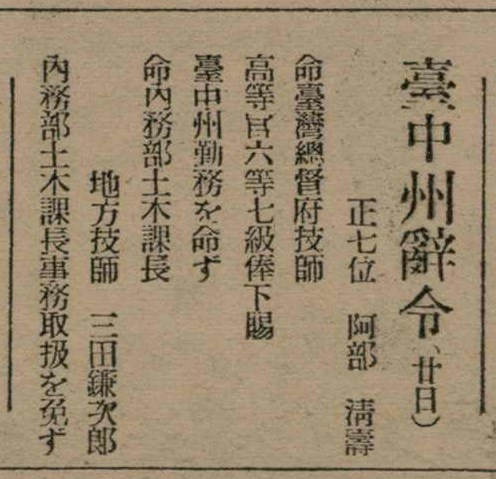 臺中州辭令(廿日)
正七位 阿部 淸壽
命臺灣總督府技師
高等官六等七級俸下賜
臺中州勤務を命ず
命內務部土木課長
地方技師 三田鎌次郎
內務部土木課長事務取扱を免ず